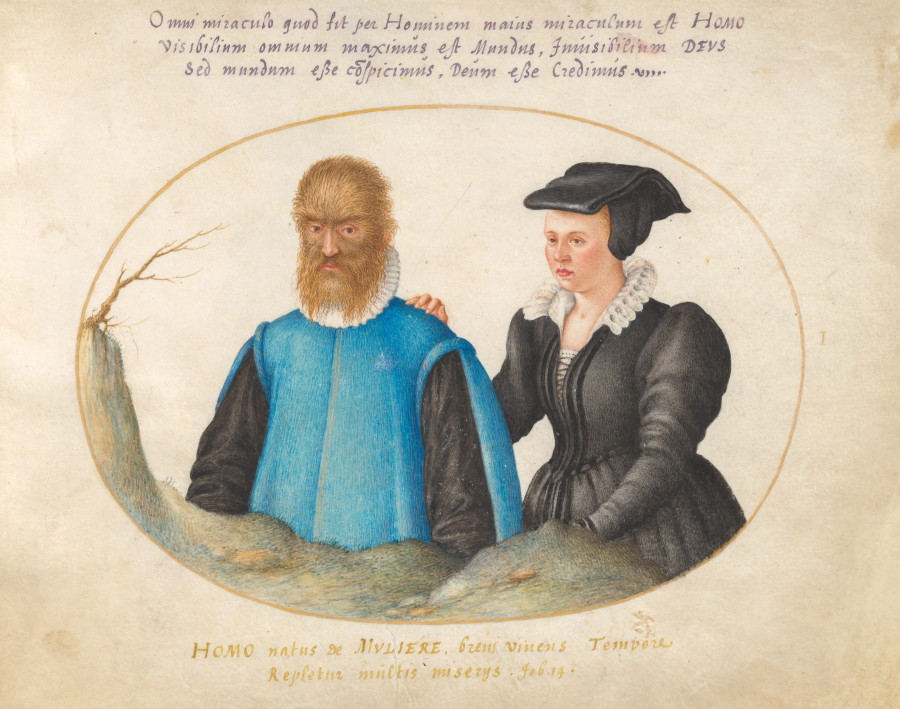 Omni miraculo quod fit per Hominem maius miraculum est HOMO
Visibilium omnium maximus est Mundus, Invisibilium DEVS
Sed mundum eße cōspicimus, Deum eße Credimus
I
HOMO natus de MVLIERE, brevi vivens Tempore
Repletur multis miserys. Job.14.